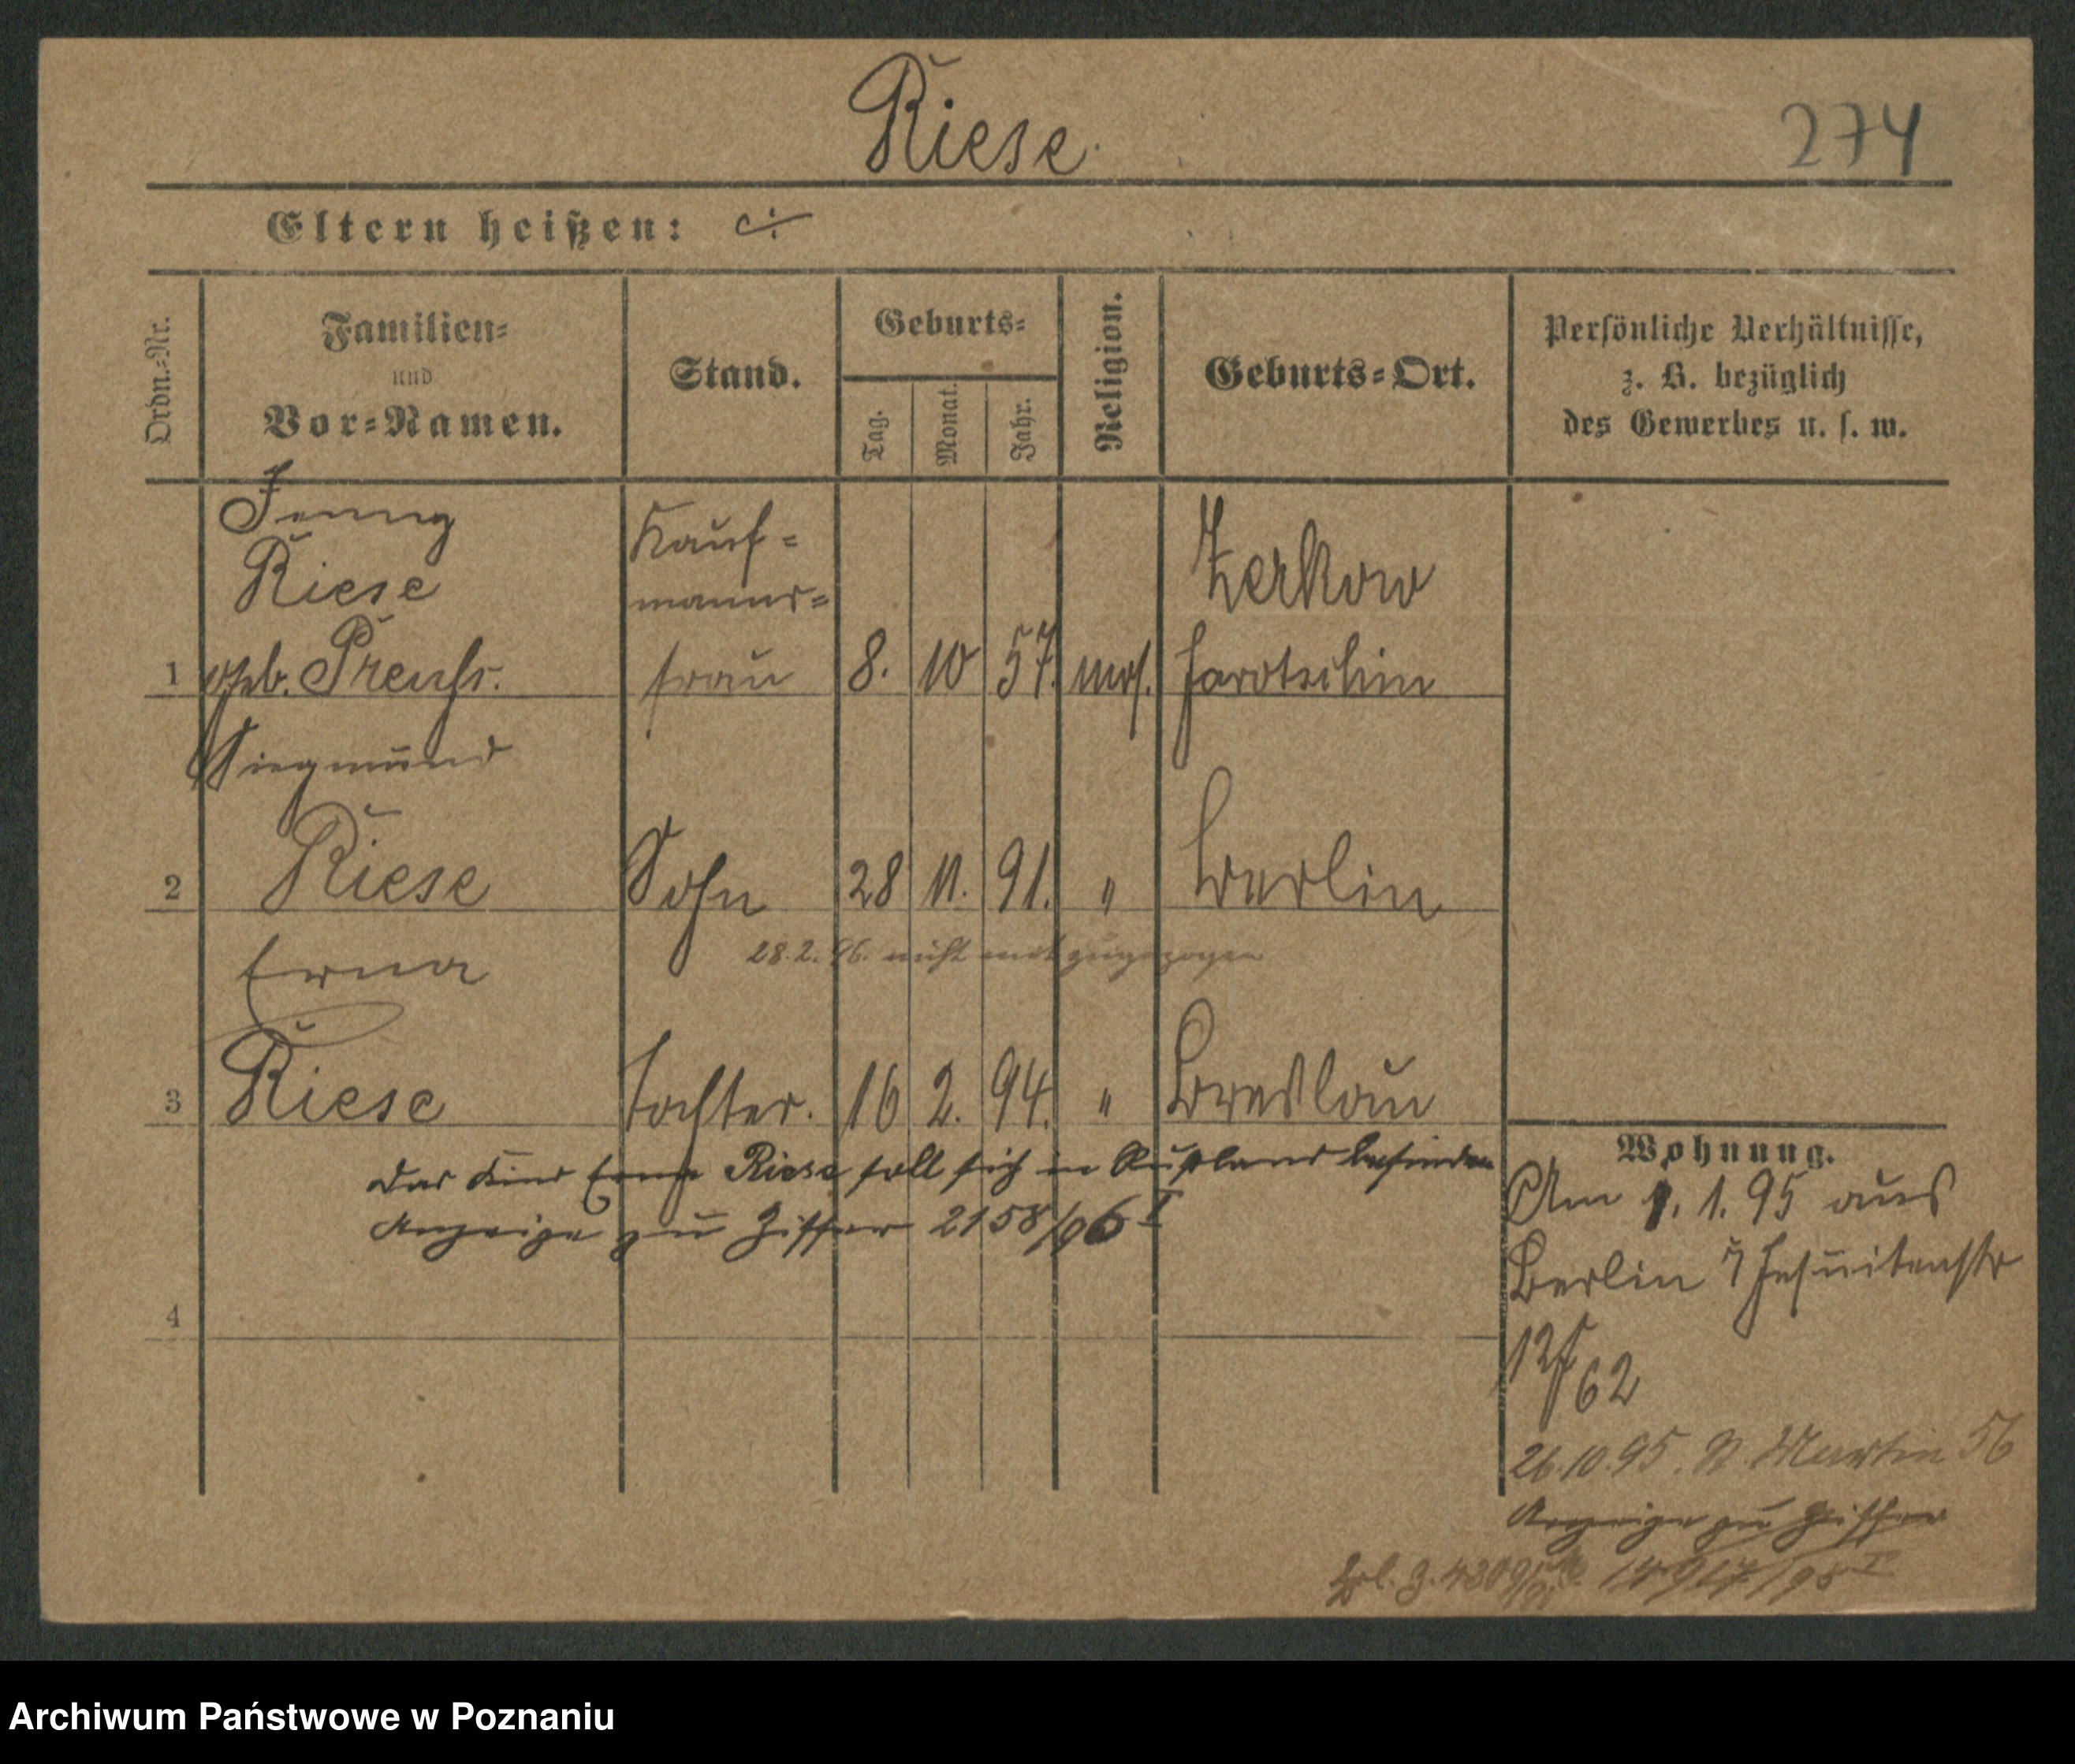 Riese.
274
Eltern heißen:
Ordn.-Nr.
Familien-
und
Vor-Namen.
Stand.
Geburts-
Tag.
Monat.
Jahr.
Religion.
Geburts-Ort.
Persönliche Verhältnisse,
z. B. bezüglich
des Gewerbes u. s. w.
Jenny
Riese
1 geb. Preuss.
Kauf-
manns-
frau
8. 10 57. mos.
Zerkow
Jarotschin
Siegmund
2 Riese Sohn 28 11. 91. " Berlin
28.2.96. nicht mit zugezogen
Erna
3 Riese Tochter. 16 2. 94. " Breslau
Das Kind Erna Riese soll sich in Rußland befinden
Anzeige zu Ziffer 2158/96 I
4
Wohnung.
Am 1. 1. 95 aus
Berlin Jesuitenstr
12/62
26.10.95. St. Martin 56
Anzeige zu Ziffer